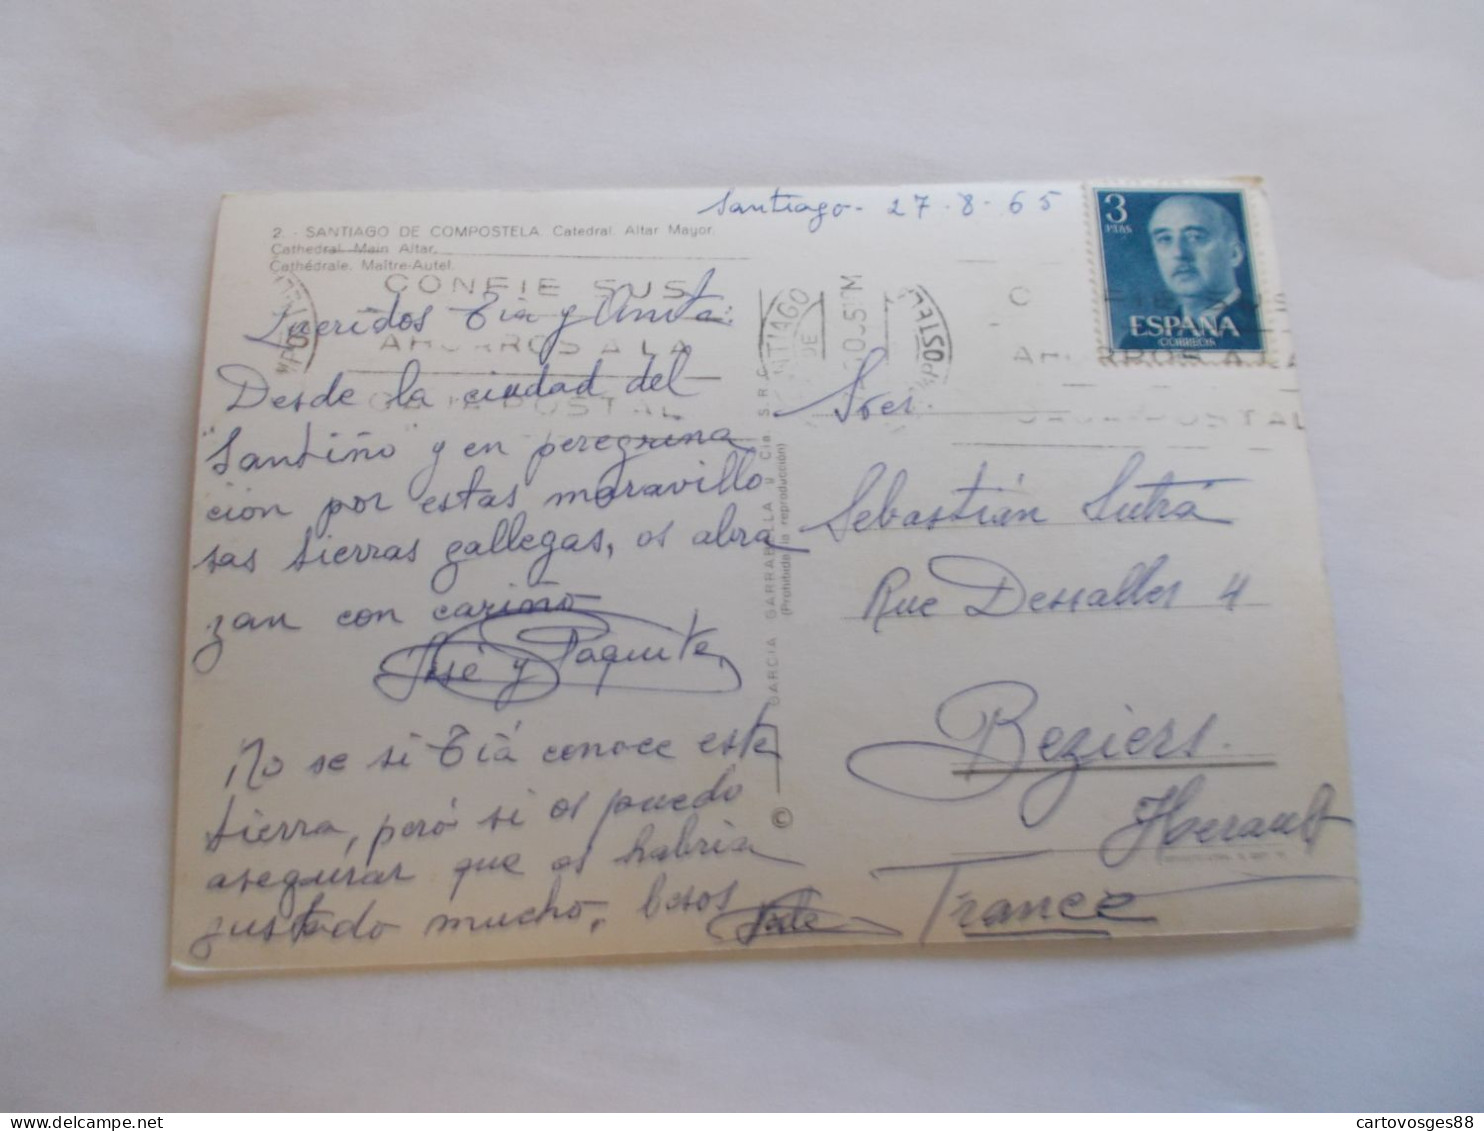 Santiago - 27-8-65
2. - SANTIAGO DE COMPOSTELA. Catedral. Altar Mayor.
Cathedral. Main Altar.
Cathédrale. Maître-Autel.
CONFIE SUS
AHORROS A LA
CAJA POSTAL
SANTIAGO DE
3 PTAS
ESPAÑA
CORREOS
Queridos Tia y Anita:
Desde la ciudad del
"Santiño" y en peregrina
cion por estas maravillo
sas tierras gallegas, os abra
zan con cariño
José y Paquita
No se si Tiá conoce esta
tierra, peró si os puedo
asegurar que os habria
gustado mucho, besos
GARCIA GARRABELLA y Cia. S.R.C.
(Prohibida la reproducción)
©
Sres.
Sebastián Sutrá
Rue Dessalles 4
Beziers.
Herault
France
cartovosges88